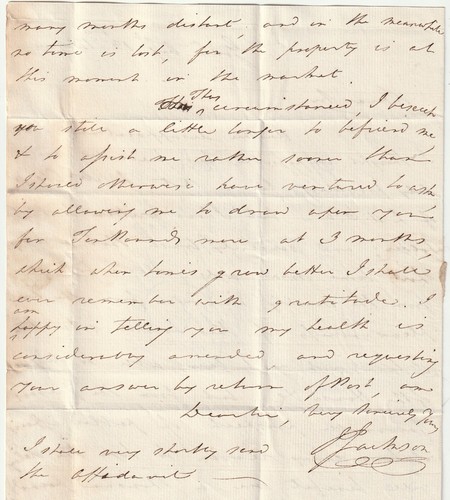 many months distant, and in the meanwhile
no time is lost, for the property is at
this moment in the market.
Thus circumstanced, I beseech
you still a little longer to befriend me,
& to assist me rather sooner than
I should otherwise have ventured to ask
by allowing me to draw upon you
for Ten Pounds more at 3 months,
which when times grow better I shall
ever remember with gratitude. I
am happy in telling you my health is
considerably amended, and requesting
your answer by return of Post, am
Dear Sir, very sincerely Yours
J Jackson
I shall very shortly send
the affidavit